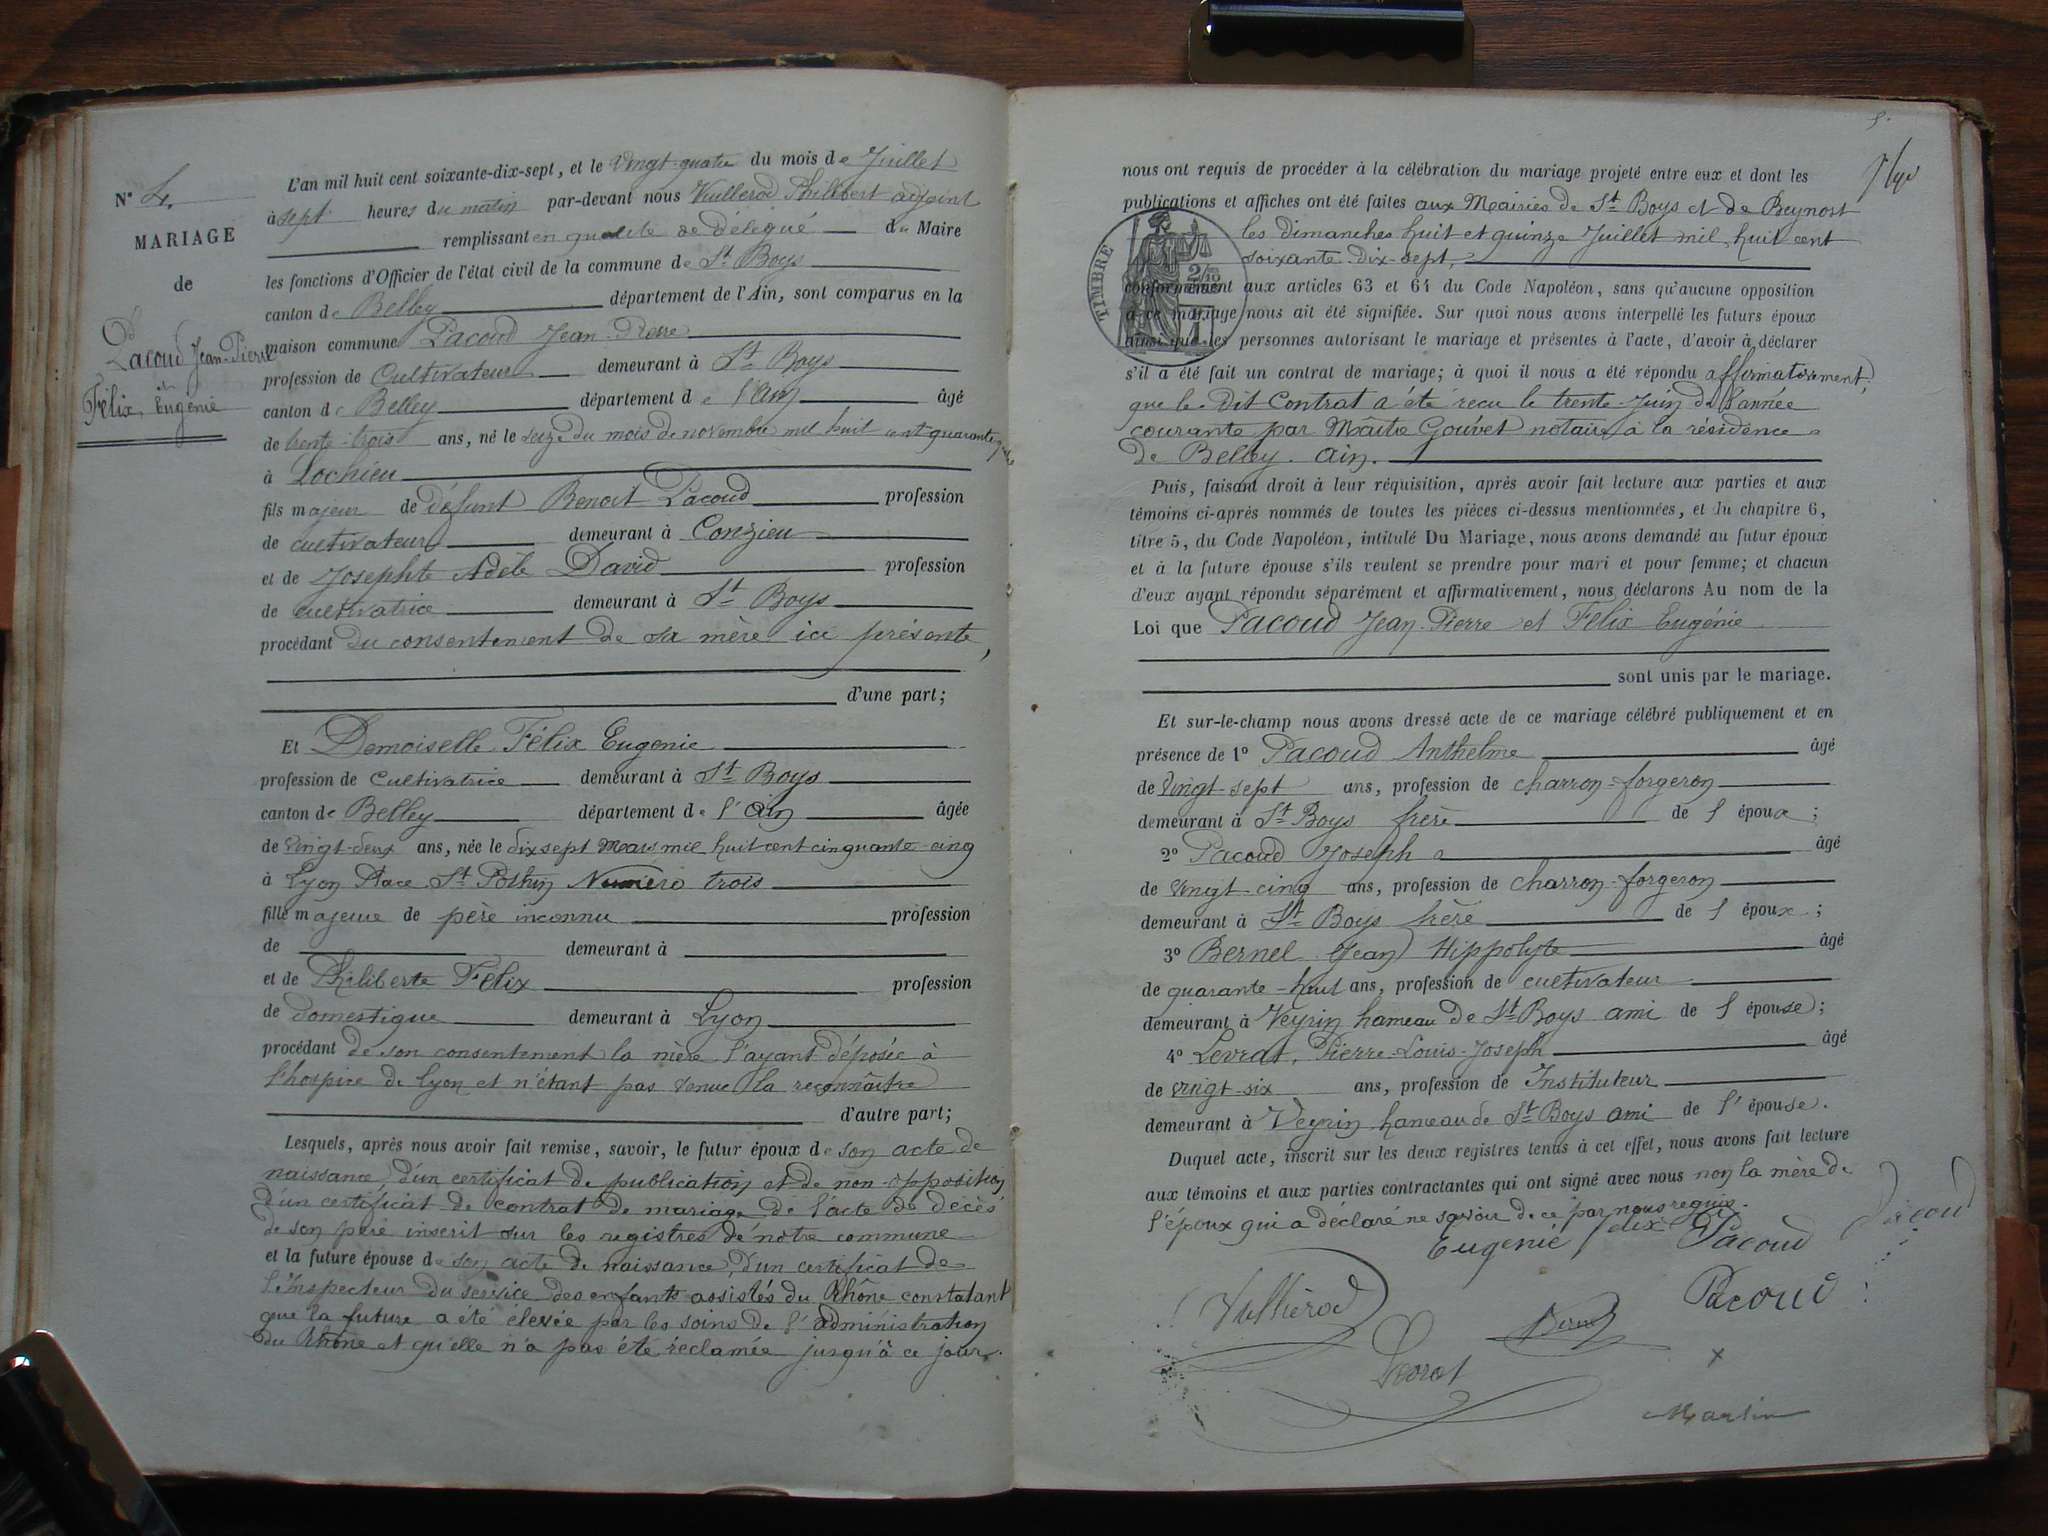 N° 4.
MARIAGE
de
Pacoud Jean-Pierre
et
Félix Eugénie
L'an mil huit cent soixante-dix-sept, et le vingt-quatre du mois de Juillet
à sept heures du matin par-devant nous Vuillerod Philibert adjoint
remplissant en qualité de délégué du Maire
les fonctions d'Officier de l'état civil de la commune de St Boys
canton de Belley département de l'Ain, sont comparus en la
maison commune Pacoud Jean-Pierre
profession de Cultivateur demeurant à St Boys
canton de Belley département de l'Ain âgé
de trente-trois ans, né le seize du mois de novembre mil huit cent quarante
à Lochieu
fils majeur de défunt Benoit Pacoud profession
de cultivateur demeurant à Conzieu
et de Josephte Adèle David profession
de cultivatrice demeurant à St Boys
procédant du consentement de sa mère ici présente,
d'une part;
Et Demoiselle Félix Eugénie
profession de Cultivatrice demeurant à St Boys
canton de Belley département de l'Ain âgée
de vingt-deux ans, née le dix sept Mars mil huit cent cinquante-cinq
à Lyon Place St Pothin Numéro trois
fille majeure de père inconnu profession
de demeurant à
et de Philiberte Félix profession
de domestique demeurant à Lyon
procédant de son consentement la mère l'ayant déposée à
l'hospice de Lyon et n'étant pas venue la reconnaître
d'autre part;
Lesquels, après nous avoir fait remise, savoir, le futur époux de son acte de
naissance, d'un certificat de publication et de non-opposition
d'un certificat de contrat de mariage de l'acte de décès
de son père inscrit sur les registres de notre commune
et la future épouse de son acte de naissance, d'un certificat de
l'inspecteur du service des enfants assistés du Rhône constatant
que la future a été élevée par les soins de l'administration
du Rhône et qu'elle n'a pas été réclamée jusqu'à ce jour.
5.
nous ont requis de procéder à la célébration du mariage projeté entre eux et dont les
publications et affiches ont été faites aux Mairies de St Boys et de Beynost
les dimanches huit et quinze Juillet mil huit cent
soixante-dix-sept,
TIMBRE 2/10
conformément aux articles 63 et 64 du Code Napoléon, sans qu'aucune opposition
à ce mariage nous ait été signifiée. Sur quoi nous avons interpellé les futurs époux
ainsi que les personnes autorisant le mariage et présentes à l'acte, d'avoir à déclarer
s'il a été fait un contrat de mariage; à quoi il nous a été répondu affirmativement,
que le dit Contrat a été reçu le trente Juin de l'année
courante par Maitre Gouvet notaire à la résidence
de Belley. Ain.
Puis, faisant droit à leur réquisition, après avoir fait lecture aux parties et aux
témoins ci-après nommés de toutes les pièces ci-dessus mentionnées, et du chapitre 6,
titre 5, du Code Napoléon, intitulé Du Mariage, nous avons demandé au futur époux
et à la future épouse s'ils veulent se prendre pour mari et pour femme; et chacun
d'eux ayant répondu séparément et affirmativement, nous déclarons Au nom de la
Loi que Pacoud Jean-Pierre et Félix Eugénie
sont unis par le mariage.
Et sur-le-champ nous avons dressé acte de ce mariage célébré publiquement et en
présence de 1° Pacoud Anthelme âgé
de vingt-sept ans, profession de charron-forgeron
demeurant à St Boys frère de l'époux;
2° Pacoud Joseph âgé
de vingt-cinq ans, profession de charron-forgeron
demeurant à St Boys frère de l'époux;
3° Bernel Jean Hippolyte âgé
de quarante-huit ans, profession de cultivateur
demeurant à Veyrin hameau de St Boys ami de l'épouse;
4° Levrat, Pierre-Louis-Joseph âgé
de vingt-six ans, profession de Instituteur
demeurant à Veyrin hameau de St Boys ami de l'épouse.
Duquel acte, inscrit sur les deux registres tenus à cet effet, nous avons fait lecture
aux témoins et aux parties contractantes qui ont signé avec nous non la mère de
l'époux qui a déclaré ne savoir de ce par nous requis.
Eugénie felix Pacoud Pacoud
Vulliérod Pacoud
Levrat
Martin